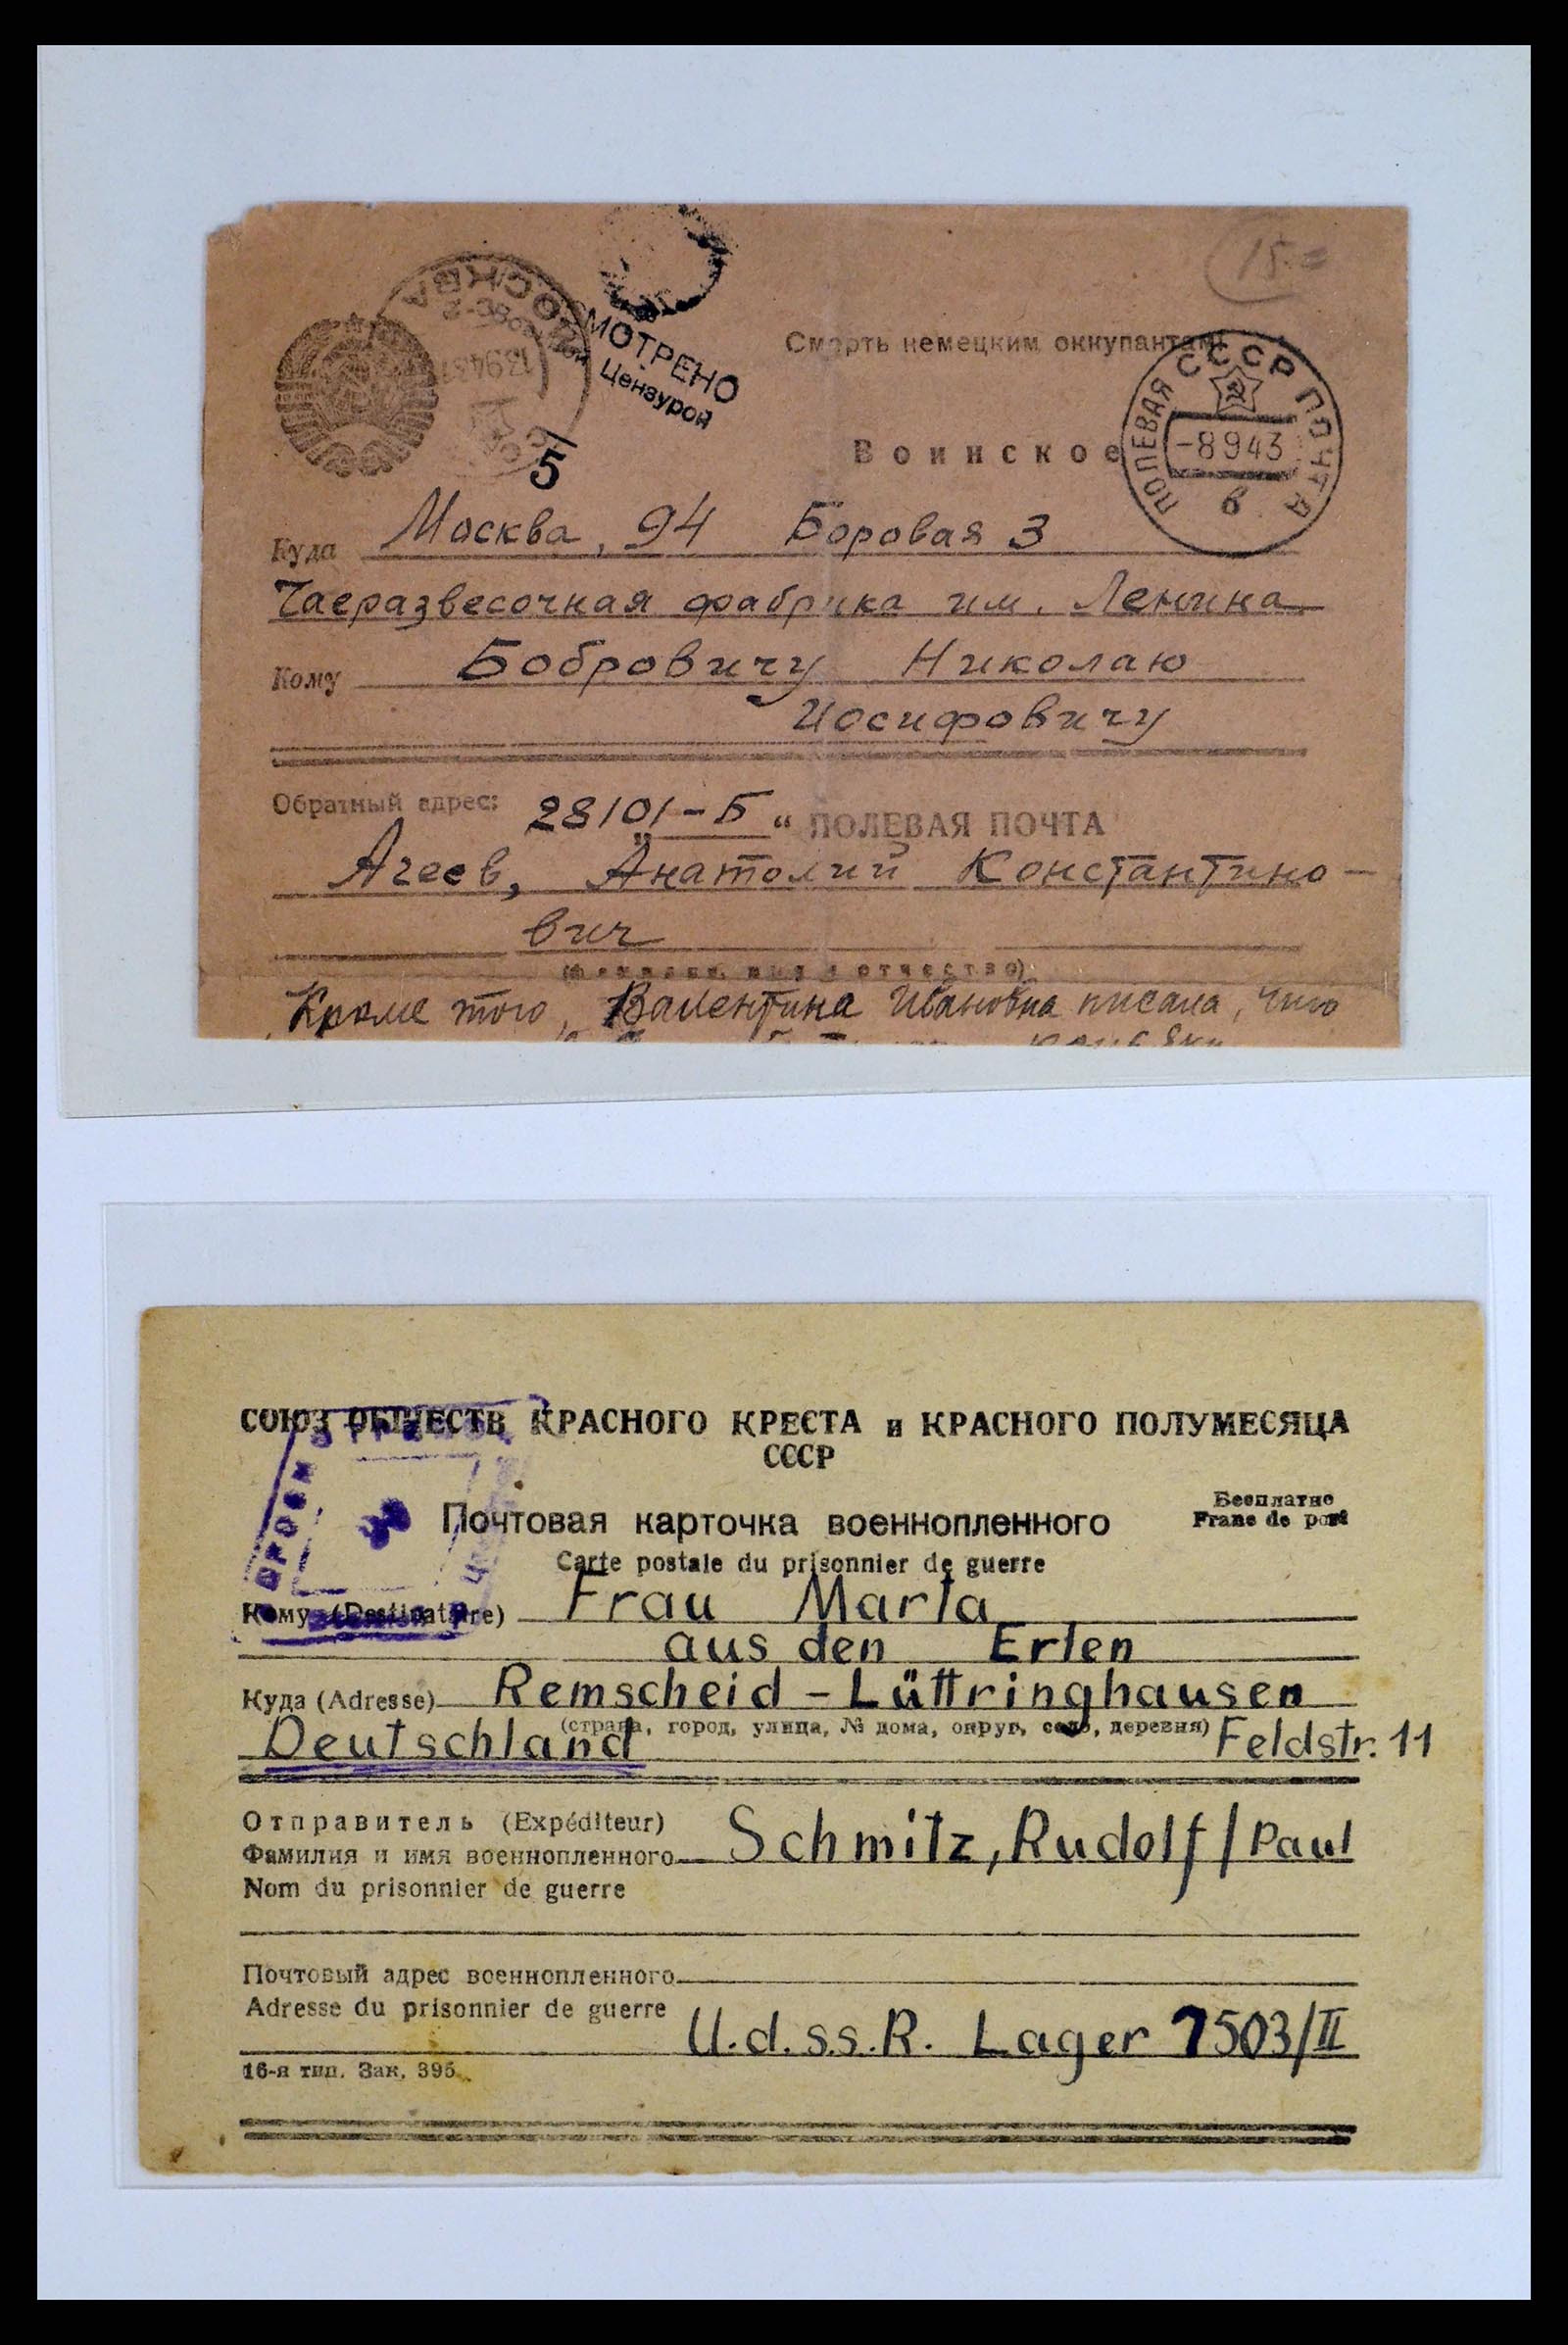 15=
МОСКВА
СМОТРЕНО
Цензурой
5
Смерть немецким оккупантам!
Воинское
ПОЛЕВАЯ ПОЧТА
СССР
-8 9 43
в
Куда Москва, 94 Боровая 3
Чаеразвесочная фабрика им. Ленина
Кому Бобровичу Николаю
Иосифовичу
Обратный адрес: 28101-Б
„ “ ПОЛЕВАЯ ПОЧТА
Агеев, Анатолий Константино-
вич
(фамилия, имя и отчество)
Кроме того, Валентина Ивановна писала, что
СОЮЗ ОБЩЕСТВ КРАСНОГО КРЕСТА и КРАСНОГО ПОЛУМЕСЯЦА
СССР
Бесплатно
Franc de port
Почтовая карточка военнопленного
Carte postale du prisonnier de guerre
Кому (Destinataire) Frau Marta
aus den Erlen
Куда (Adresse) Remscheid - Lüttringhausen
(страна, город, улица, № дома, округ, село, деревня)
Deutschland Feldstr. 11
Отправитель (Expéditeur)
Фамилия и имя военнопленного Schmitz, Rudolf/Paul
Nom du prisonnier de guerre
Почтовый адрес военнопленного
Adresse du prisonnier de guerre
U.d.s.s.R. Lager 7503/II
16-я тип. Зак. 395